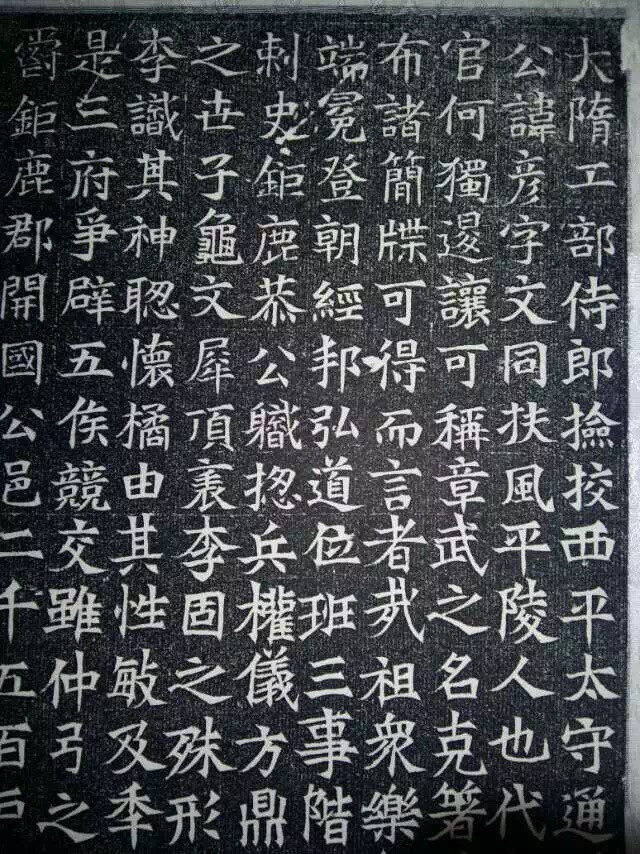 大隋工部侍郎撿挍西平太守通
公諱彦字文同扶風平陵人也代
官何獨邊讓可稱章武之名克著
布諸簡牒可得而言者㢤祖衆樂
端冕登朝經邦弘道位班三事階
刺史鉅鹿恭公職揔兵權儀方鼎
之世子龜文犀頂裏李固之殊形
李識其神聦懷橘由其性敏及秊
是三府爭辟五侯競交雖仲弓之
爵鉅鹿郡開國公邑二千五百戶